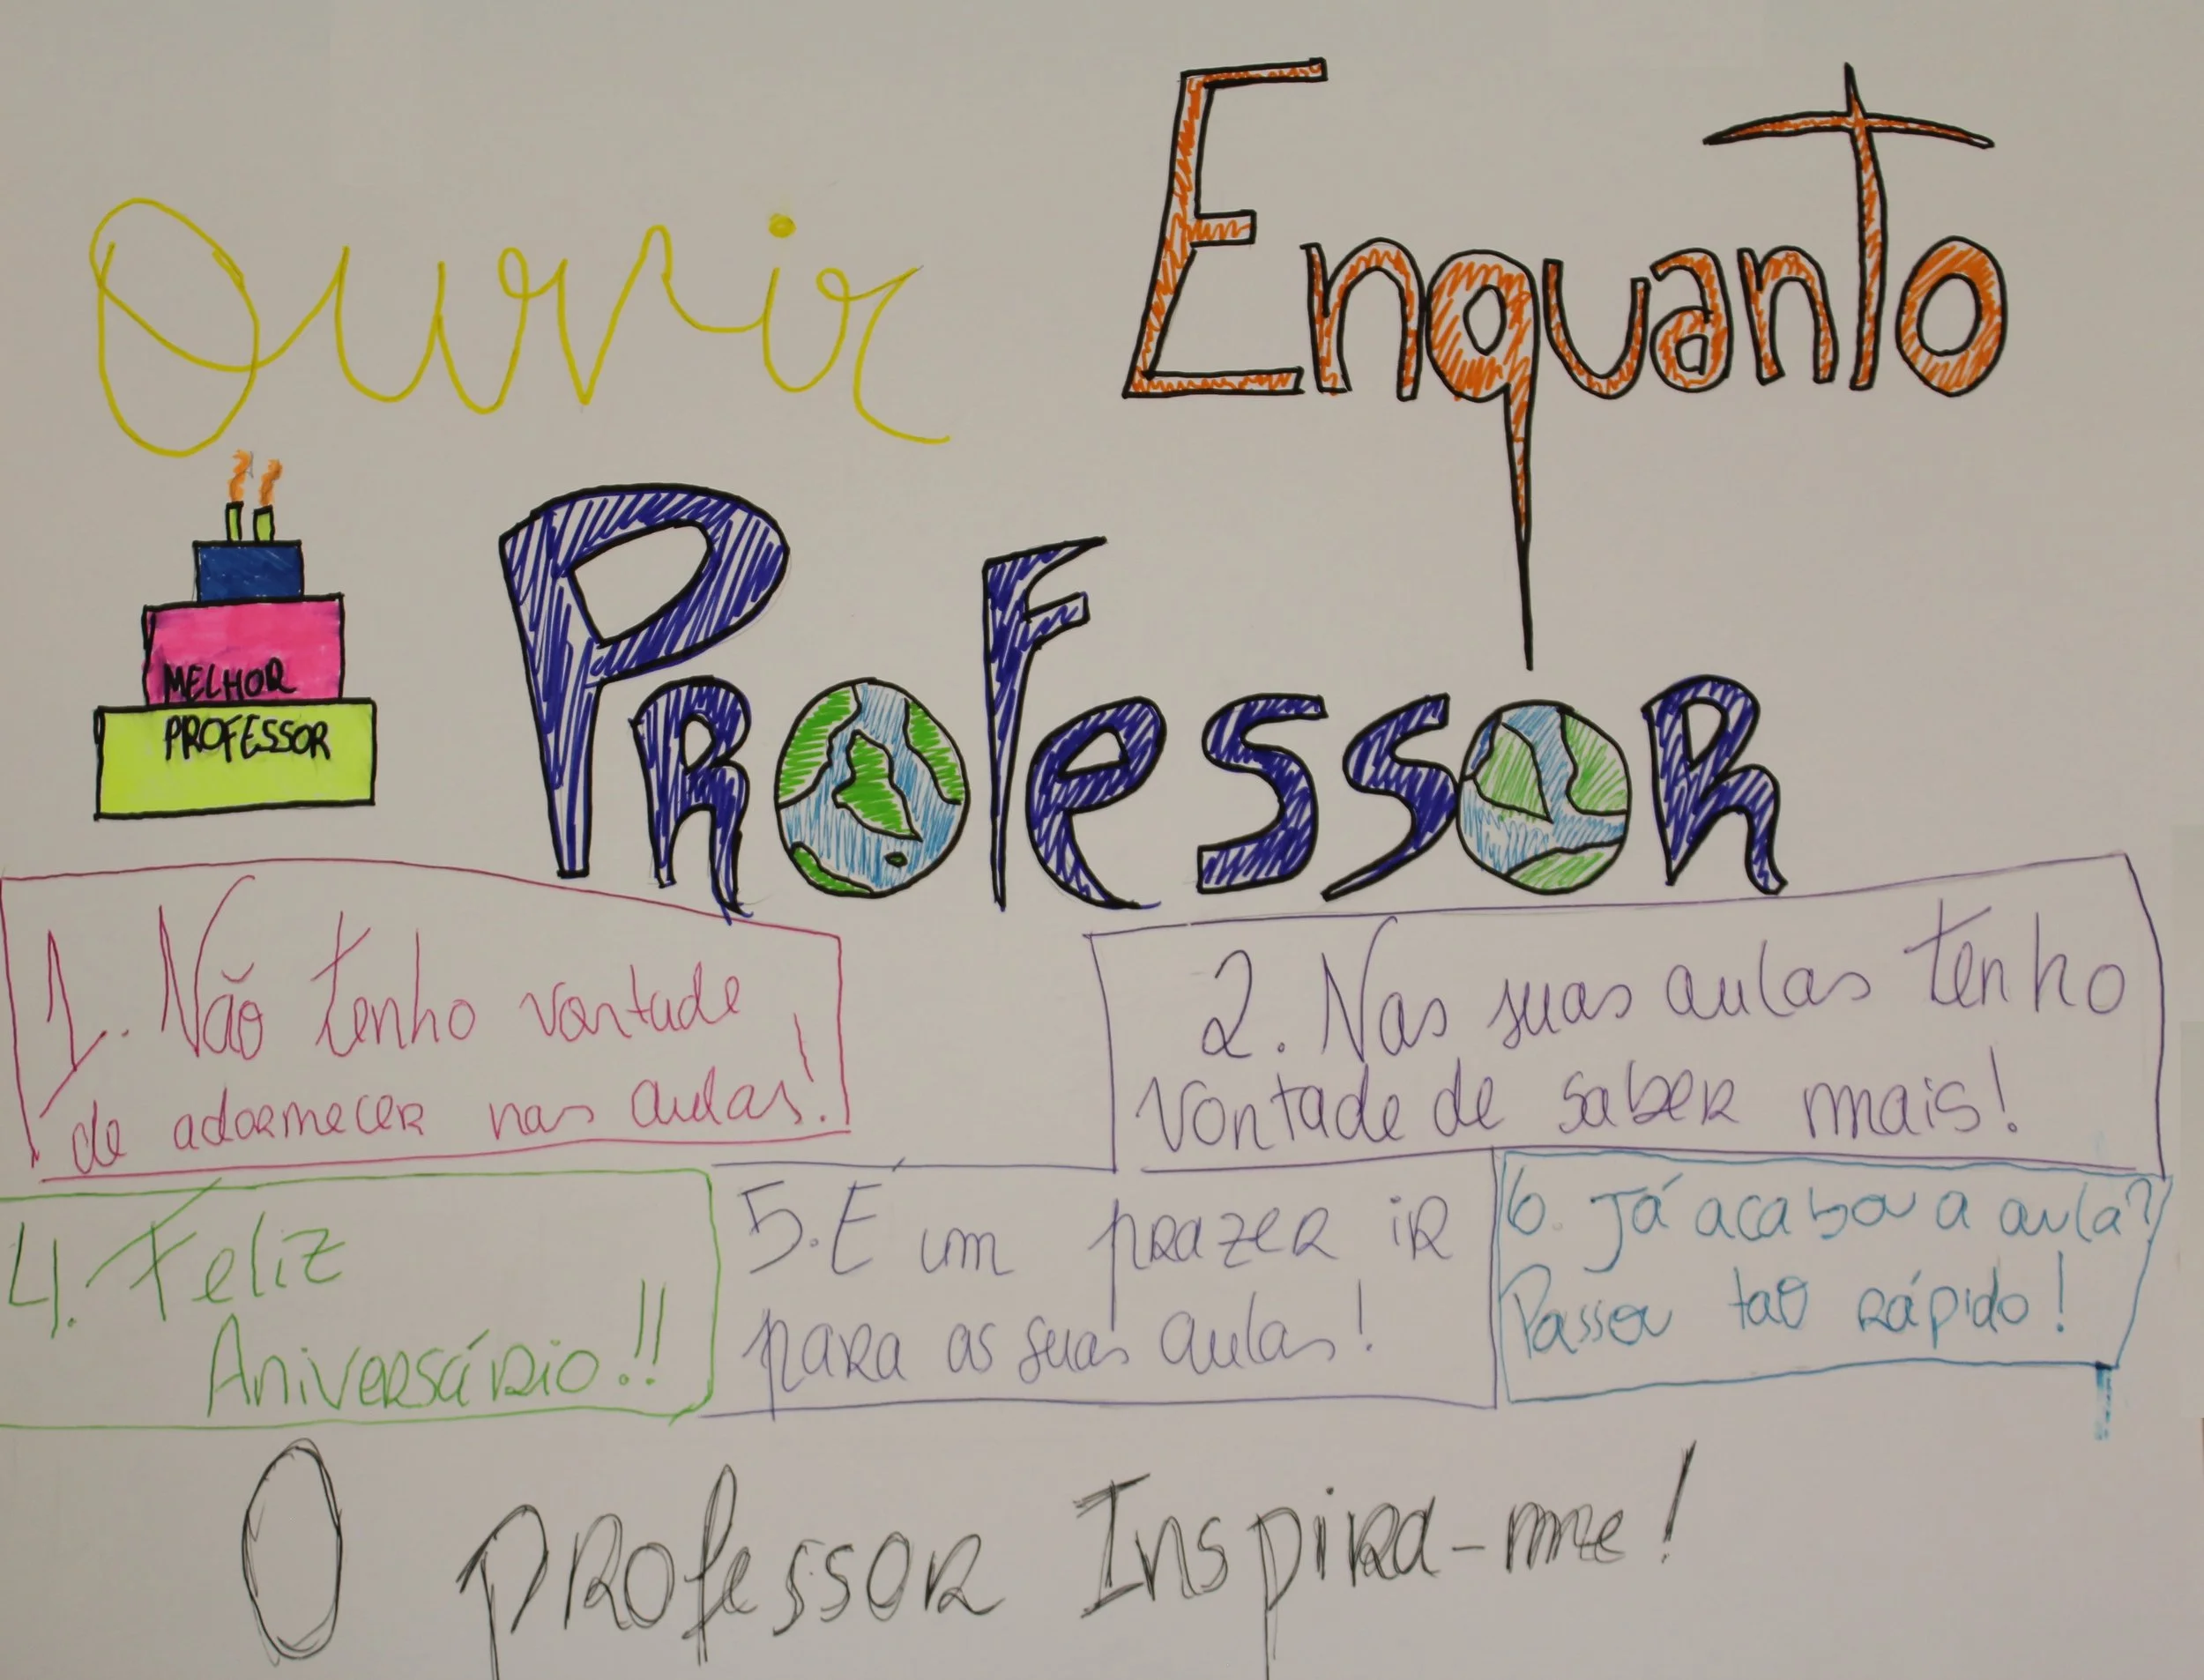 Ouvir
Enquanto
Professor
MELHOR
PROFESSOR
1. Não tenho vontade
de adormecer nas aulas!
2. Nas suas aulas tenho
vontade de saber mais!
4. Feliz
Aniversário!!
5. E um prazer ir
para as suas aulas!
6. Já acabou a aula?
Passou tao rápido!
O professor Inspira-me!